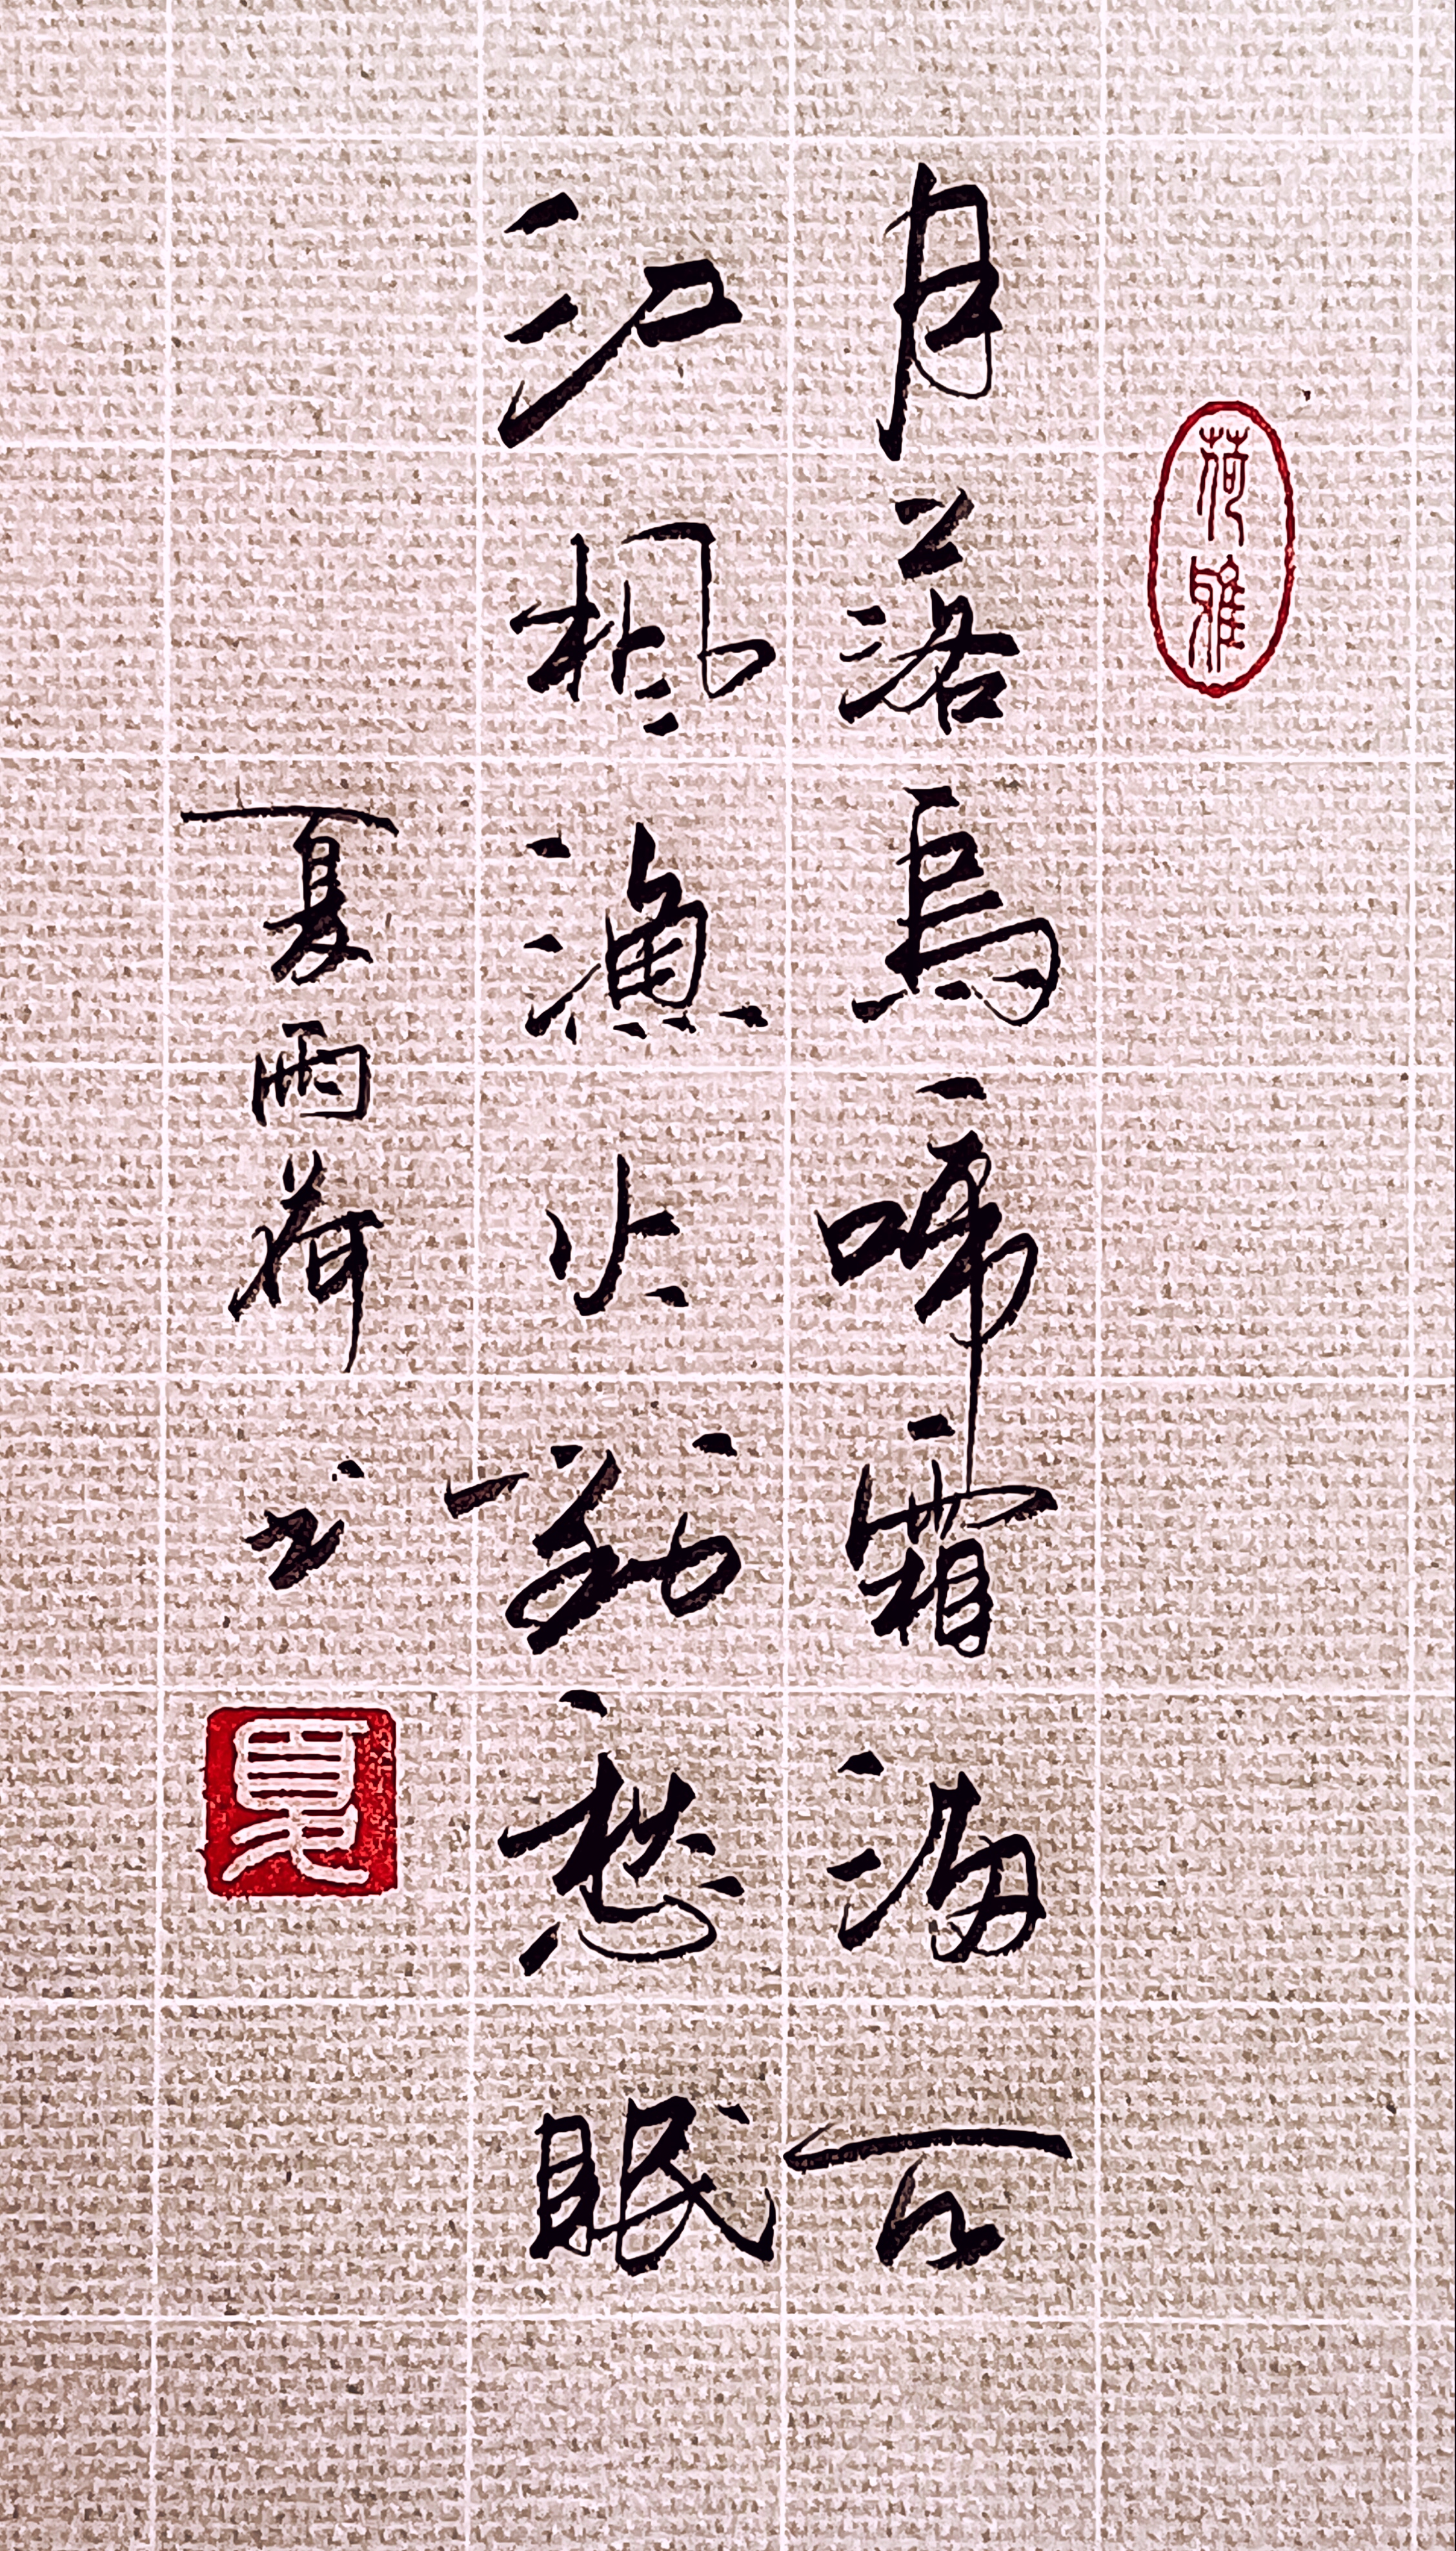 荷雅
月落烏啼霜滿天
江楓漁火對愁眠
夏雨荷书
夏